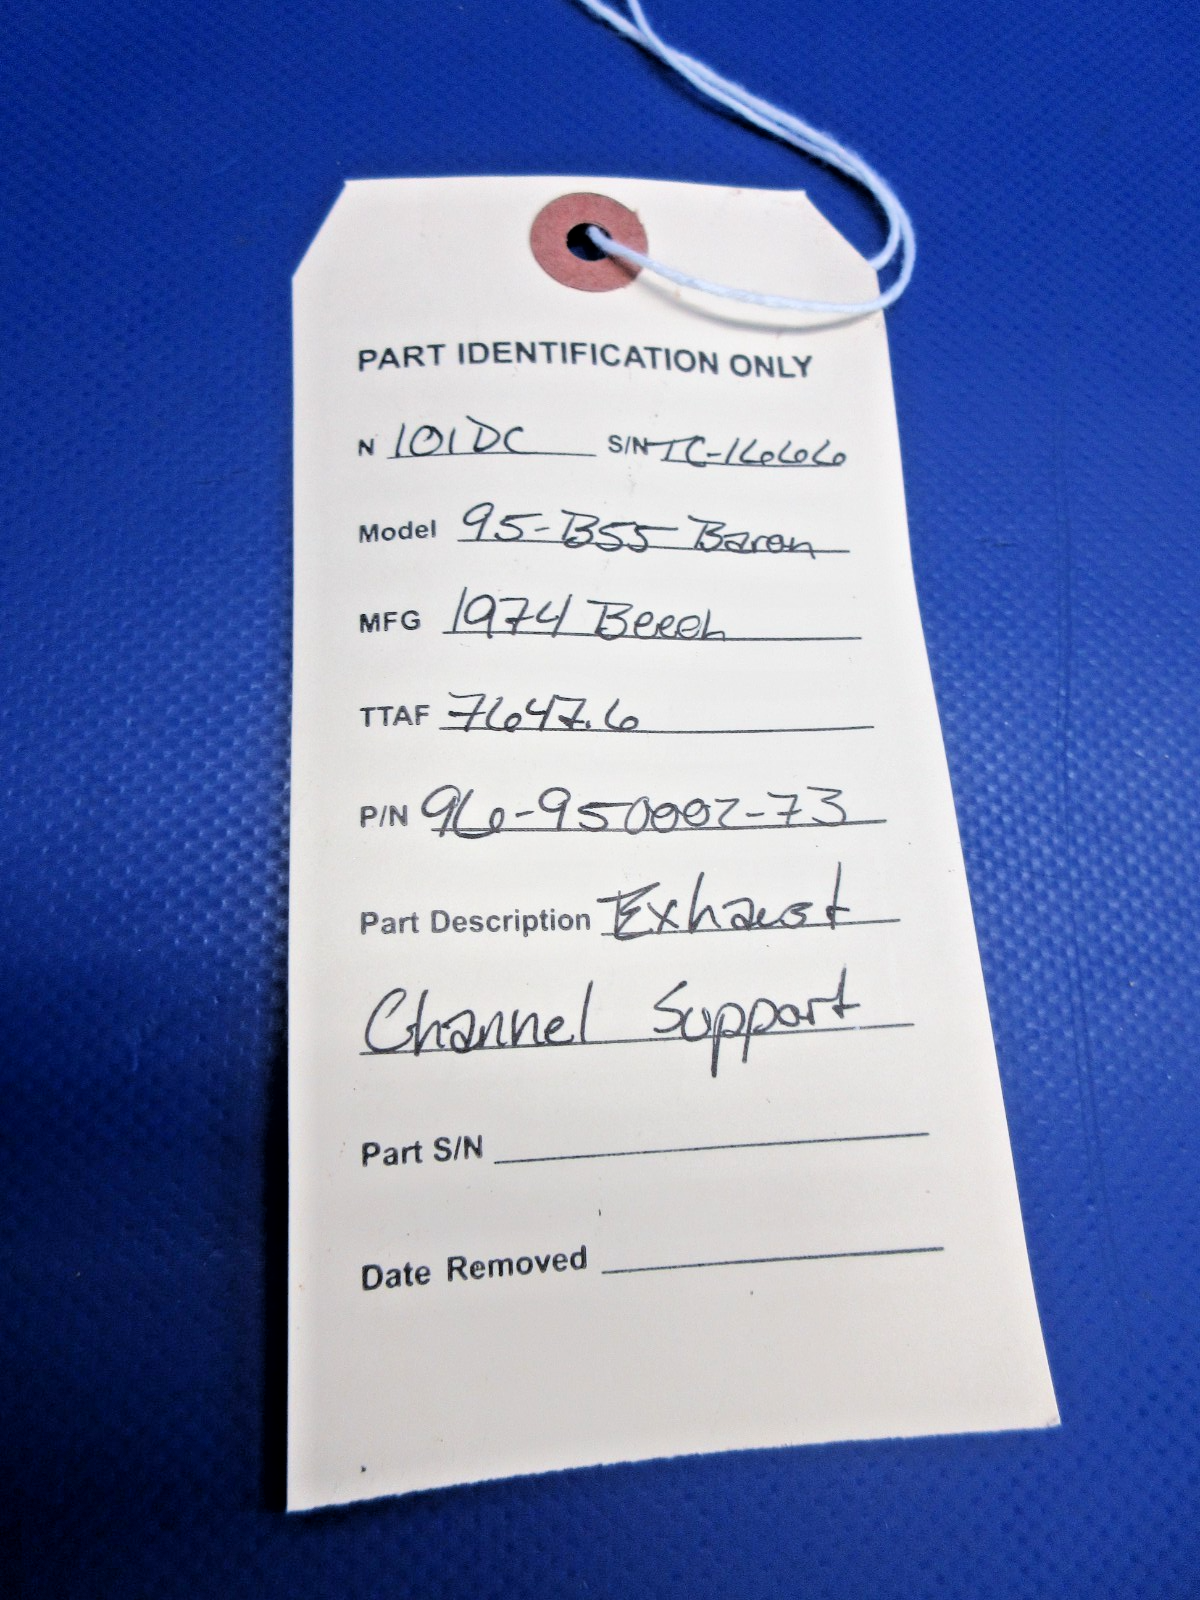 PART IDENTIFICATION ONLY
N 101DC S/N TC-1666
Model 95-B55 Baron
MFG 1974 Beech
TTAF 7647.6
P/N 96-950002-73
Part Description Exhaust
Channel Support
Part S/N
Date Removed